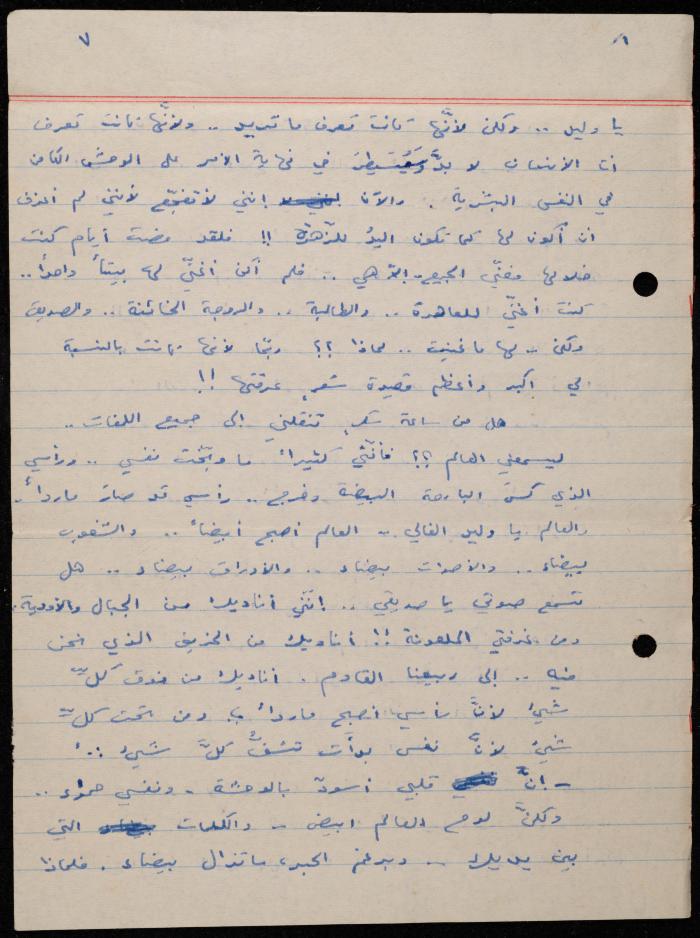 ٧
يا وليد .. ولكن لأنّها كانت تعرف ما تريد .. ولأنّها كانت تعرف
أن الإنسان لا بدّ وسيُسَيطِرَ في نهاية الأمر على الوحش الكامن
في النفس البشرية . والآن إنني لأتفجّع لأنني لم أعرف
ان أكون لها كما تكون اليدُ للزّهرة !! فلقد مضت أيام كنت
خلالها مغنّي الجميع
كنت أغنّي للعاهرة .. والطالبة .. والزوجة الخائنة .. والصديق
ولكن .. لها ما غنيت .. لماذا ؟؟ ربّما لأنها كانت بالنسبة
لي اكبر وأعظم قصيدة شعرٍ عرفتها !!
هل من ساعة تنقلني إلى جميع اللغات ..
ليسمعني العالم ؟؟ فانّني كثيراً ما وبّخت نفسي .. ورأسي
الذي كسرَ البارحة البيضة وخرج .. رأسي قد صارَ مارداً .
والعالم يا وليد الغالي .. العالم أصبح أبيضاً .. والشعوب
بيضاء .. والأصوات بيضاء .. والأوراق بيضاء .. هل
تسمع صوتي يا صديقي .. انّني أناديك من الجبال والأودية .
ومن غرفتي الملعونة !! أناديك من الخريف الذي نحن
فيه .. إلى ربيعنا القادم . أناديك من فوق كلّ
شيءٍ لأنَّ رأسي أصبح مارداً .. ومن تحت كلّ
شيءٍ لأنَّ نفسي بدأَت تشفُّ كلَّ شيءٍ ..
- إنَّ قلبي أسودٌ بالوحشة - ونفسي حمراء ..
ولكنَّ لوح العالم ابيض - والكلمات التي
بين يديك .. وبرغم الحبر، ماتزال بيضاء . فلماذا